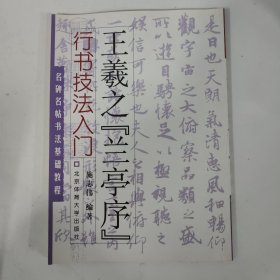 王羲之『兰亭序』
行书技法入门
名碑名帖书法基础教程
施志伟 编著
北京体育大学出版社
是日也天朗气清惠风和畅仰
观宇宙之大俯察品类之盛
所以游目骋怀足以极视听之
娱信可乐也夫人之相与俯仰